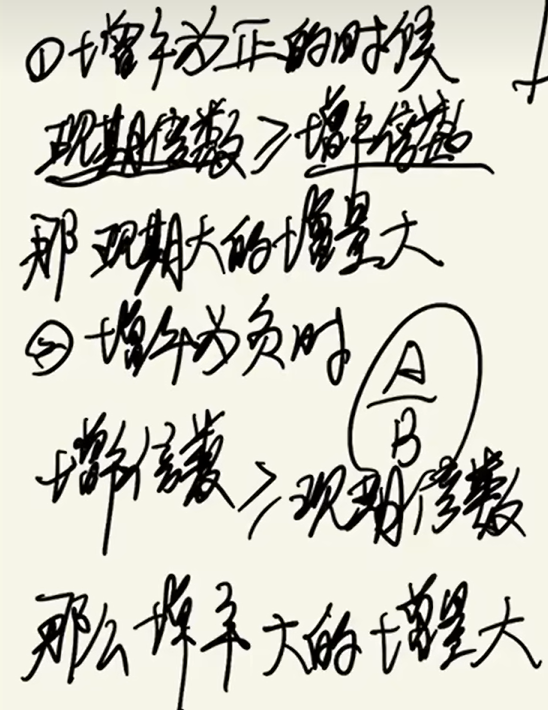 ①增率为正的时候
现期倍数≥增率倍数
那现期大的增量大
②增率为负时
A
B
增率倍数≥现期倍数
那么增率大的增量大